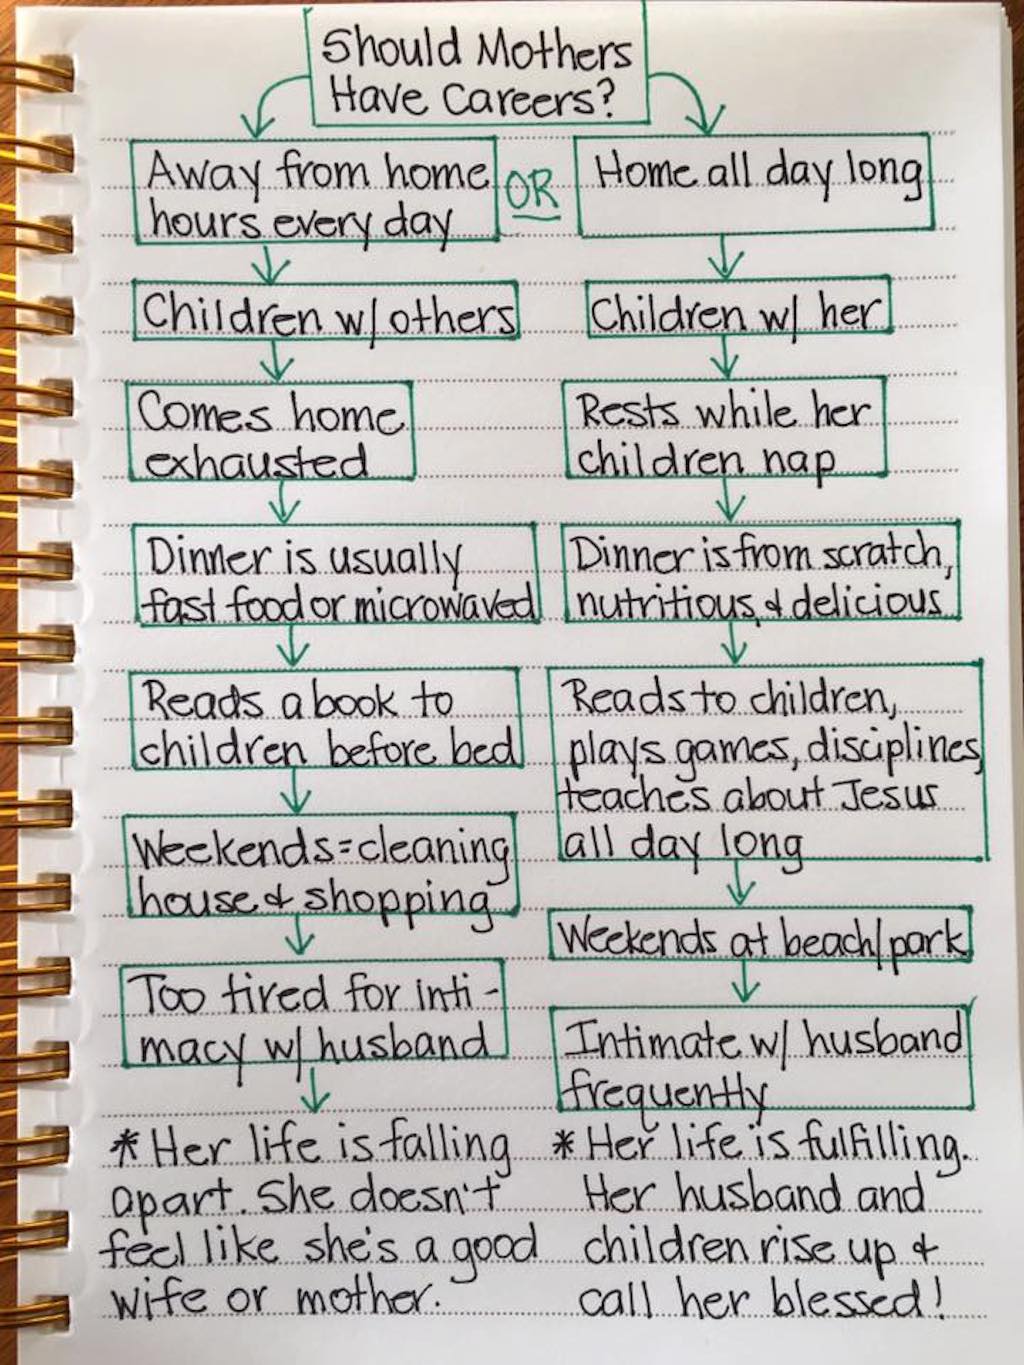 Should Mothers
Have Careers?
Away from home
hours every day
OR
Home all day long
Children w/ others
Children w/ her
Comes home
exhausted
Rests while her
children nap
Dinner is usually
fast food or microwaved
Dinner is from scratch,
nutritious, & delicious
Reads a book to
children before bed
Reads to children,
plays games, disciplines,
teaches about Jesus
all day long
Weekends=cleaning
house & shopping
Weekends at beach/park
Too tired for inti-
macy w/ husband
Intimate w/ husband
frequently
* Her life is falling
apart. She doesn't
feel like she's a good
wife or mother.
* Her life is fulfilling.
Her husband and
children rise up &
call her blessed!